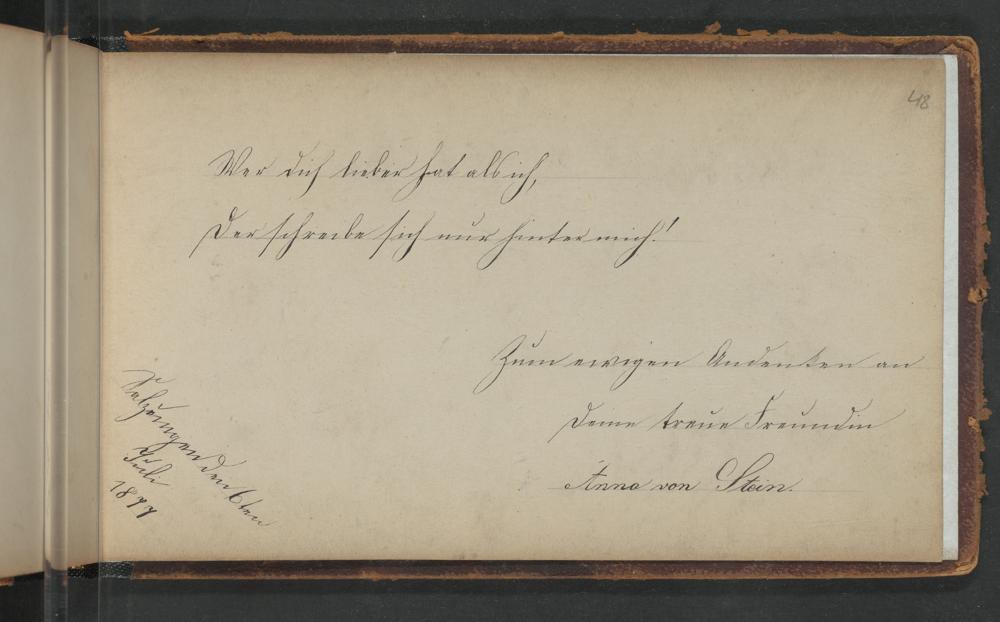 48
Wer dich lieber hat als ich,
Der schreibe sich nur hinter mich!
Zum ewigen Andenken an
Deine treue Freundin
Anna von Stein.
Salzungen den 6ten
Juli
1877